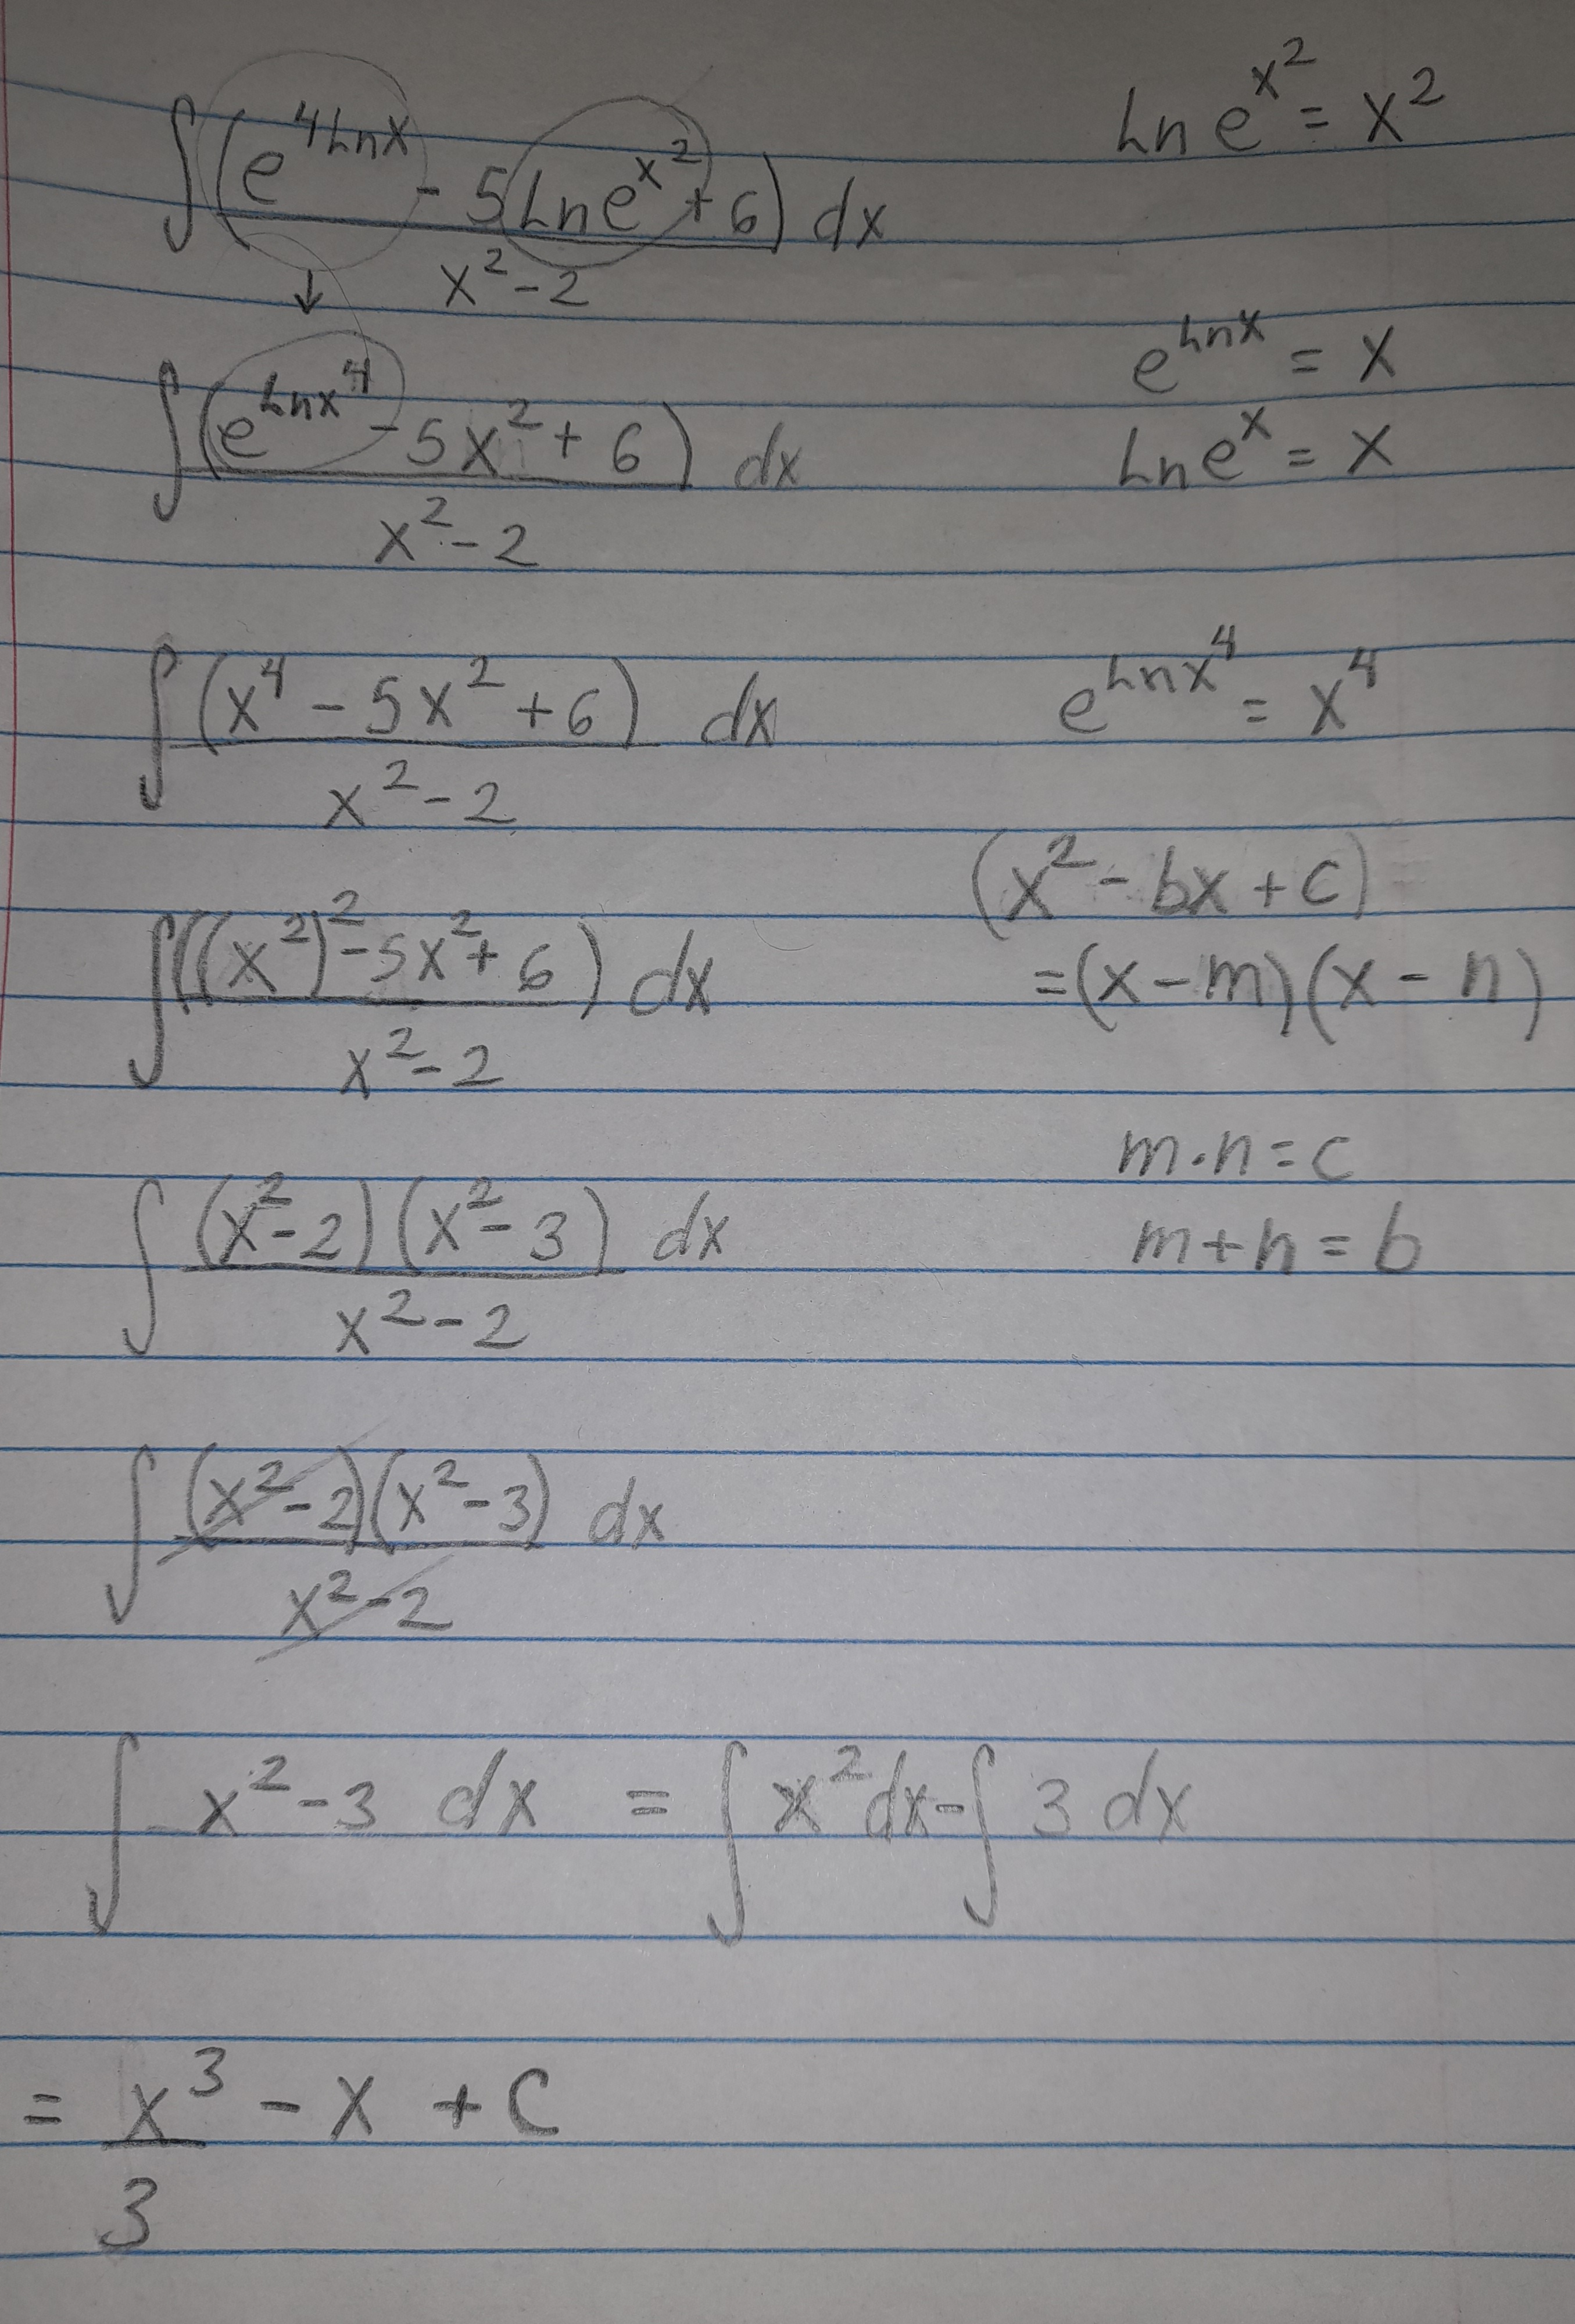 ∫ (e^{4 Lnx} - 5 Ln e^{x^2} + 6) / (x^2 - 2) dx
Ln e^{x^2} = x^2
↓
∫ (e^{Lnx^4} - 5x^2 + 6) / (x^2 - 2) dx
e^{Lnx} = x
Ln e^x = x
∫ (x^4 - 5x^2 + 6) / (x^2 - 2) dx
e^{Lnx^4} = x^4
(x^2 - bx + c)
= (x - m)(x - n)
∫ ((x^2)^2 - 5x^2 + 6) / (x^2 - 2) dx
m · n = c
m + n = b
∫ (x^2 - 2)(x^2 - 3) / (x^2 - 2) dx
∫ (x^2 - 2)(x^2 - 3) / (x^2 - 2) dx
∫ x^2 - 3 dx = ∫ x^2 dx - ∫ 3 dx
= x^3 / 3 - x + C